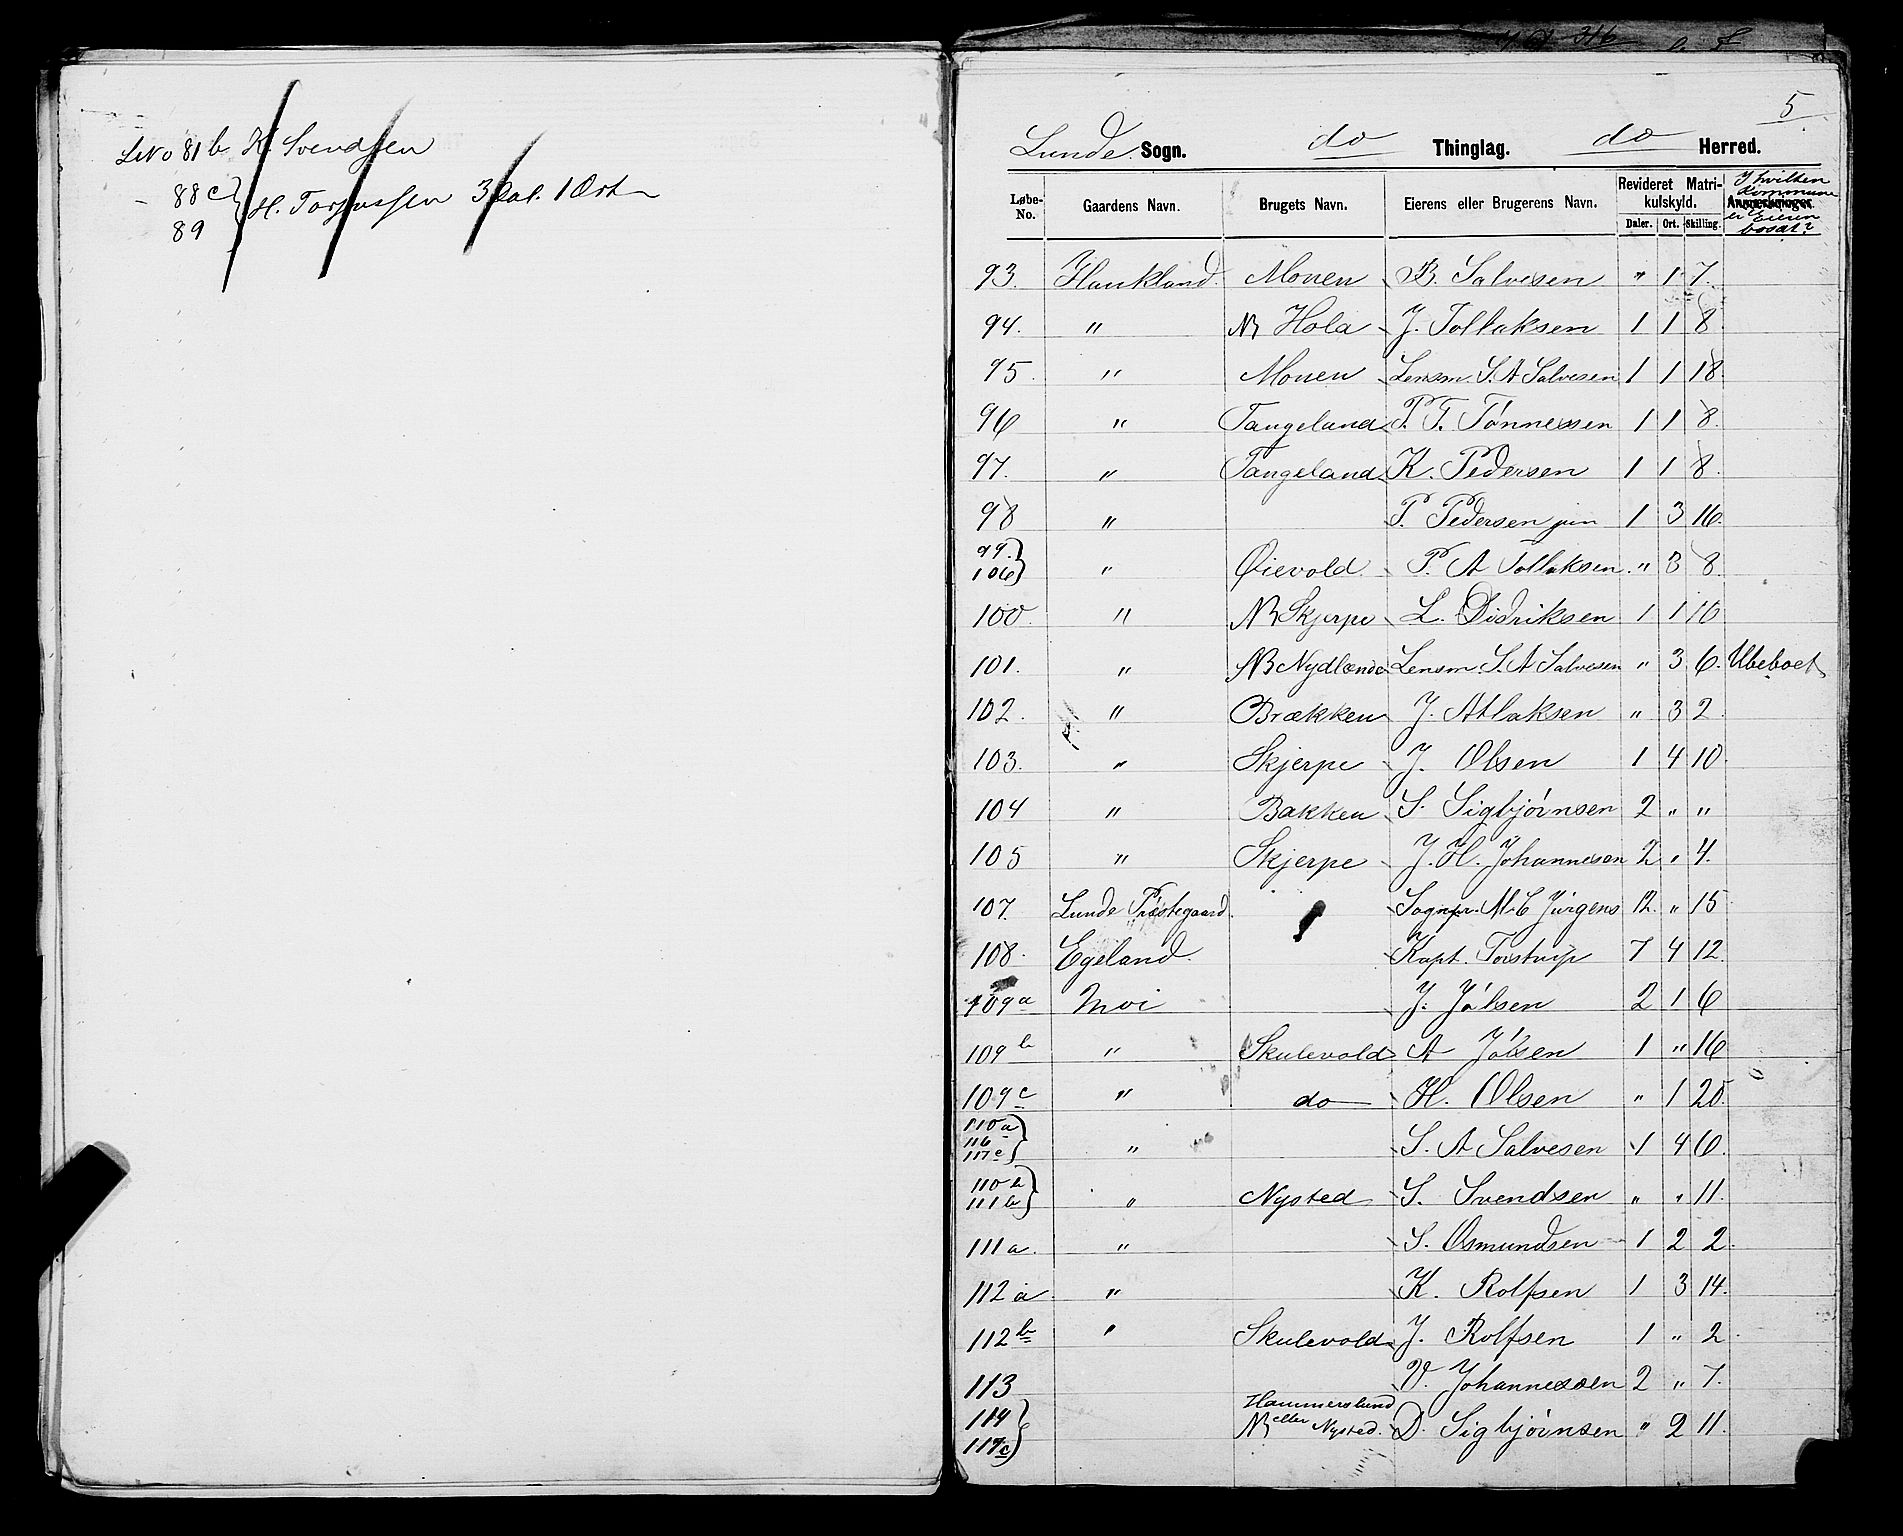 LNo 81 b K. Svendsen
" 88 c } H. Torjussen 3 Dal. 1 Ort
89
5
Lunde Sogn. do Thinglag. do Herred.
Løbe-No. Gaardens Navn. Brugets Navn. Eierens eller Brugerens Navn. Revideret Matrikulskyld. Daler. Ort. Skilling. Anmerkninger. I hvilken Kommune er Eieren bosat?
93. Haukland. Monen B. Salvesen " 1 7.
94. " NB Hola J. Tollaksen 1 1 8.
95. " Monen Lensm. S. A Salvesen 1 1 18.
96 " Tangeland P. T. Tønnessen 1 1 8.
97. " Tangeland K. Pedersen 1 1 8.
98 " P. Pedersen jun 1 3 16.
99. 106 } " Øievold. P. A Tollaksen " 3 8.
100. " NB Skjerpe L. Didriksen 1 1 10
101. " NB Nydlænde Lensm. S. A Salvesen " 3 6. Ubeboet
102. " Brækken J. Atlaksen " 3 2.
103. " Skjerpe J. Olsen 1 4 10.
104 " Bakken S. Sigbjørnsen 2 " "
105 " Skjerpe J. H. Johannesen 2 " 4.
107. Lunde Præstegaard. Sognpr. M. C Jürgens 12. " 15
108. Egeland. Kapt. Torstrup 7 4 12.
109 a Moi J. Jølsen 2 1 6
109 b " Skulevold A Jølsen 1 " 16
109 c " do H. Olsen " 1 20.
110 a 116 117 e } " S. A Salvesen 1 4 6.
110 b 111 b } " Nysted S. Svendsen " " 11.
111 a. " S. Osmundsen 1 2 2.
112 a. " K. Rolfsen 1 3 14.
112 b " Skulevold J. Rolfsen 1 " 2.
113 V. Johannessen 2 " 7.
114 117 c } Hammerslund NB eller Nysted. D. Sigbjørnsen " 2 11.